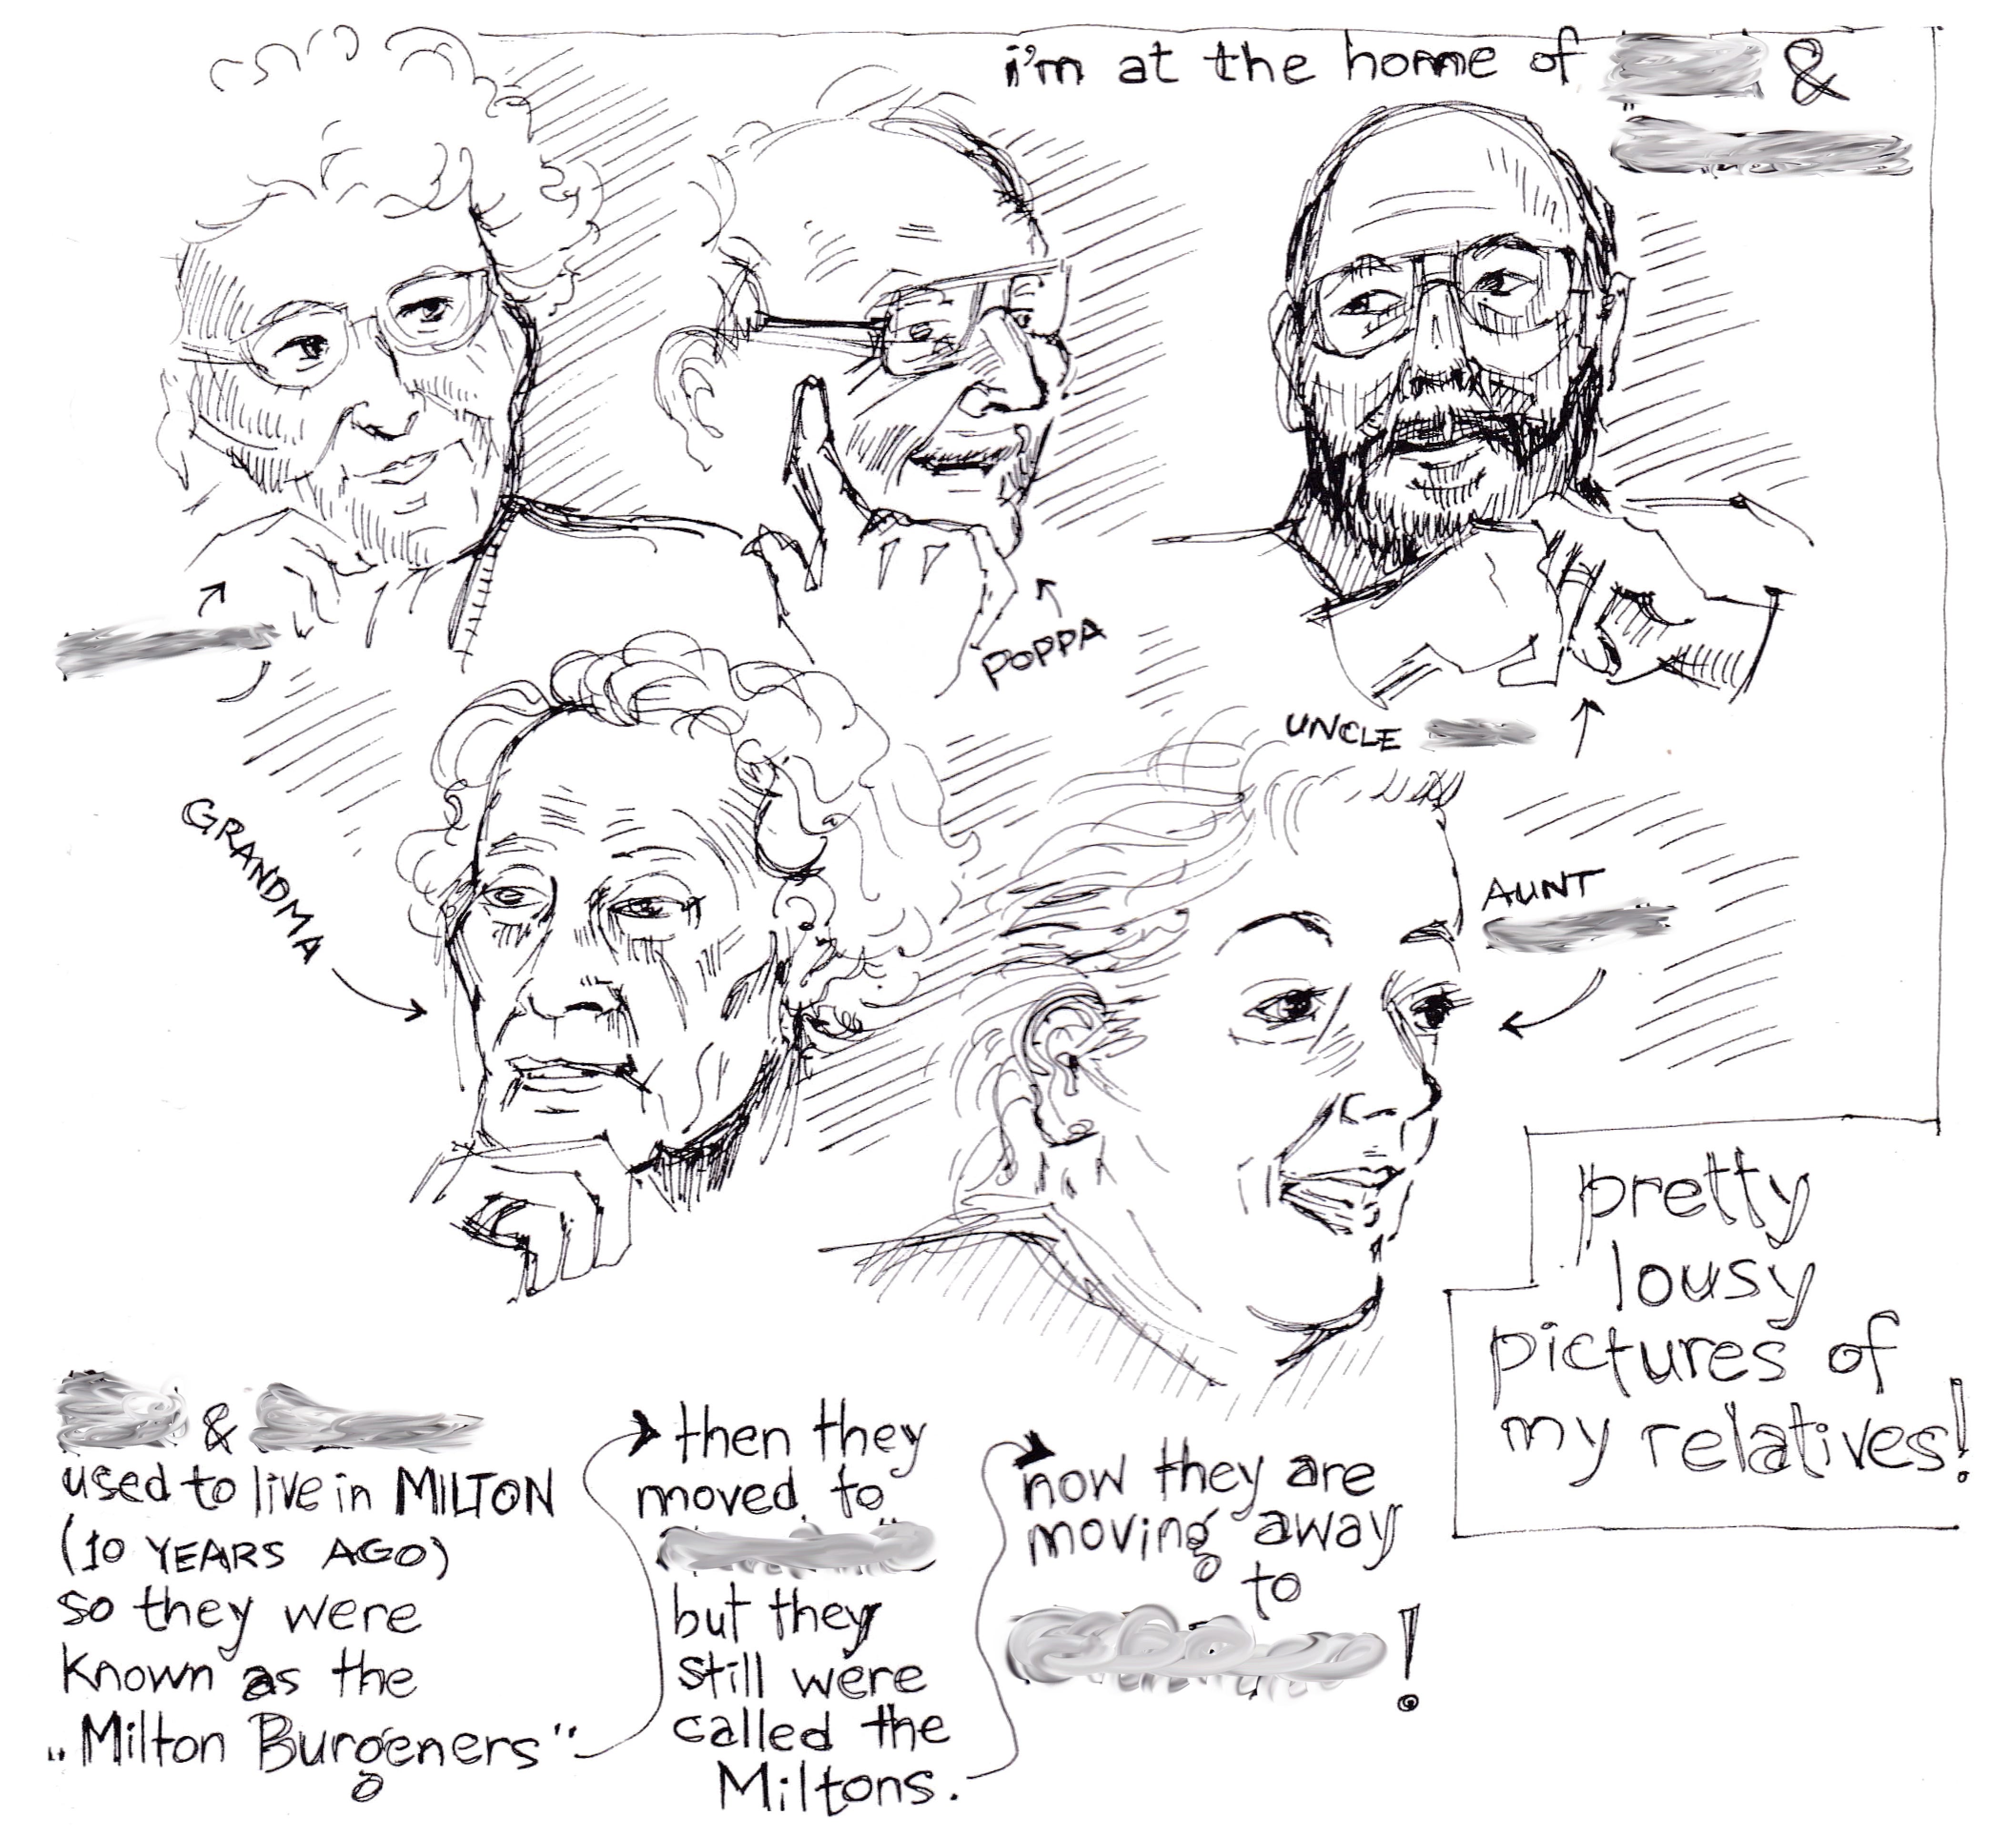 i'm at the home of
&
POPPA
UNCLE
GRANDMA
AUNT
pretty
lousy
pictures of
my relatives!
&
used to live in MILTON
(10 YEARS AGO)
so they were
known as the
„Milton Burgeners"
then they
moved to
but they
still were
called the
Miltons.
now they are
moving away
to
!